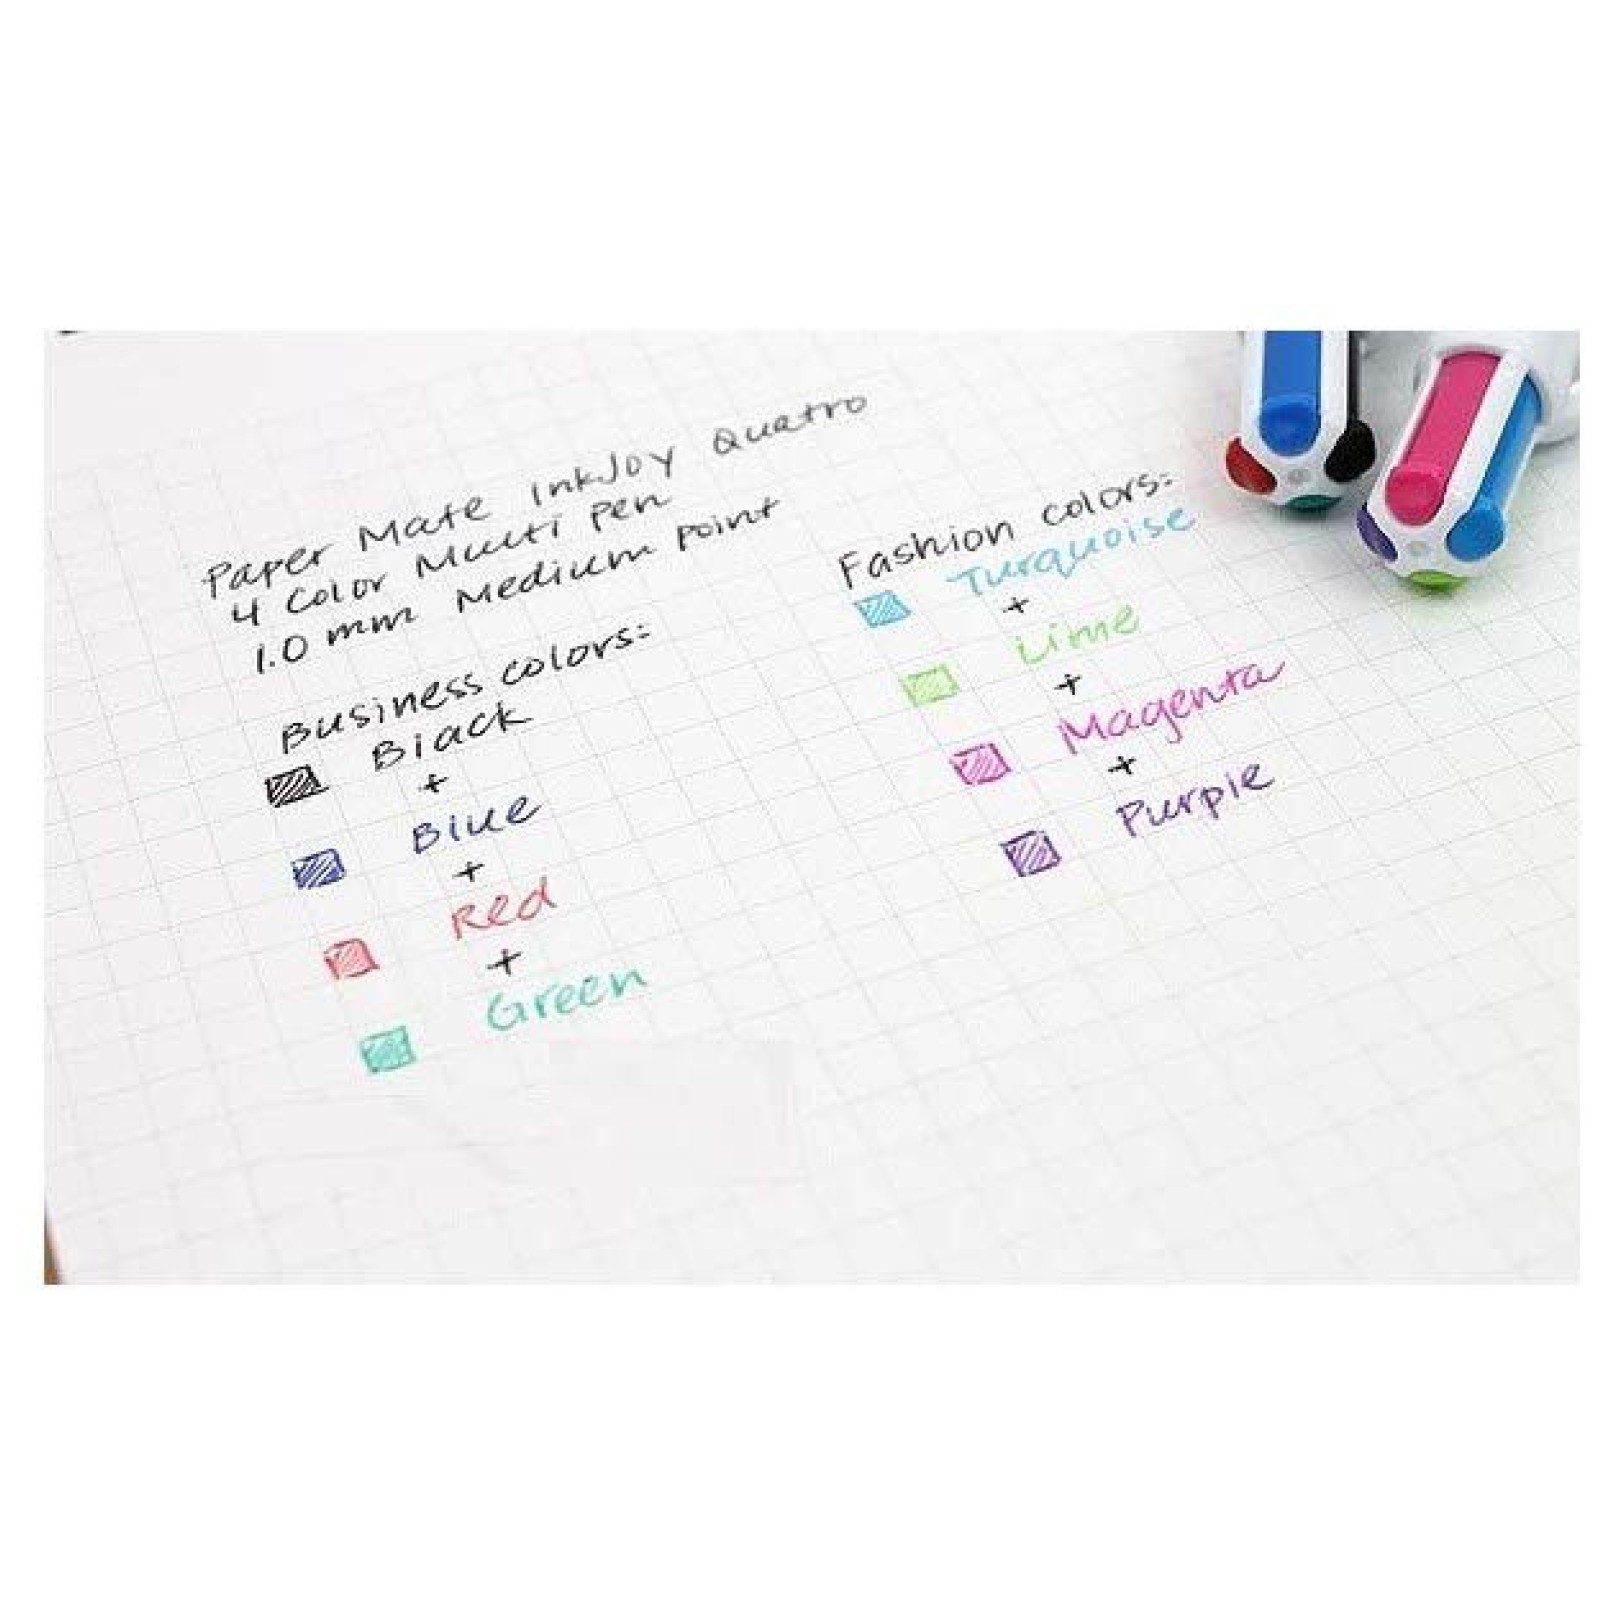 Paper Mate InkJoy Quatro
4 Color Multi Pen
1.0 mm Medium Point
Business colors:
Black
+
Blue
+
Red
+
Green
Fashion colors:
Turquoise
+
Lime
+
Magenta
+
Purple